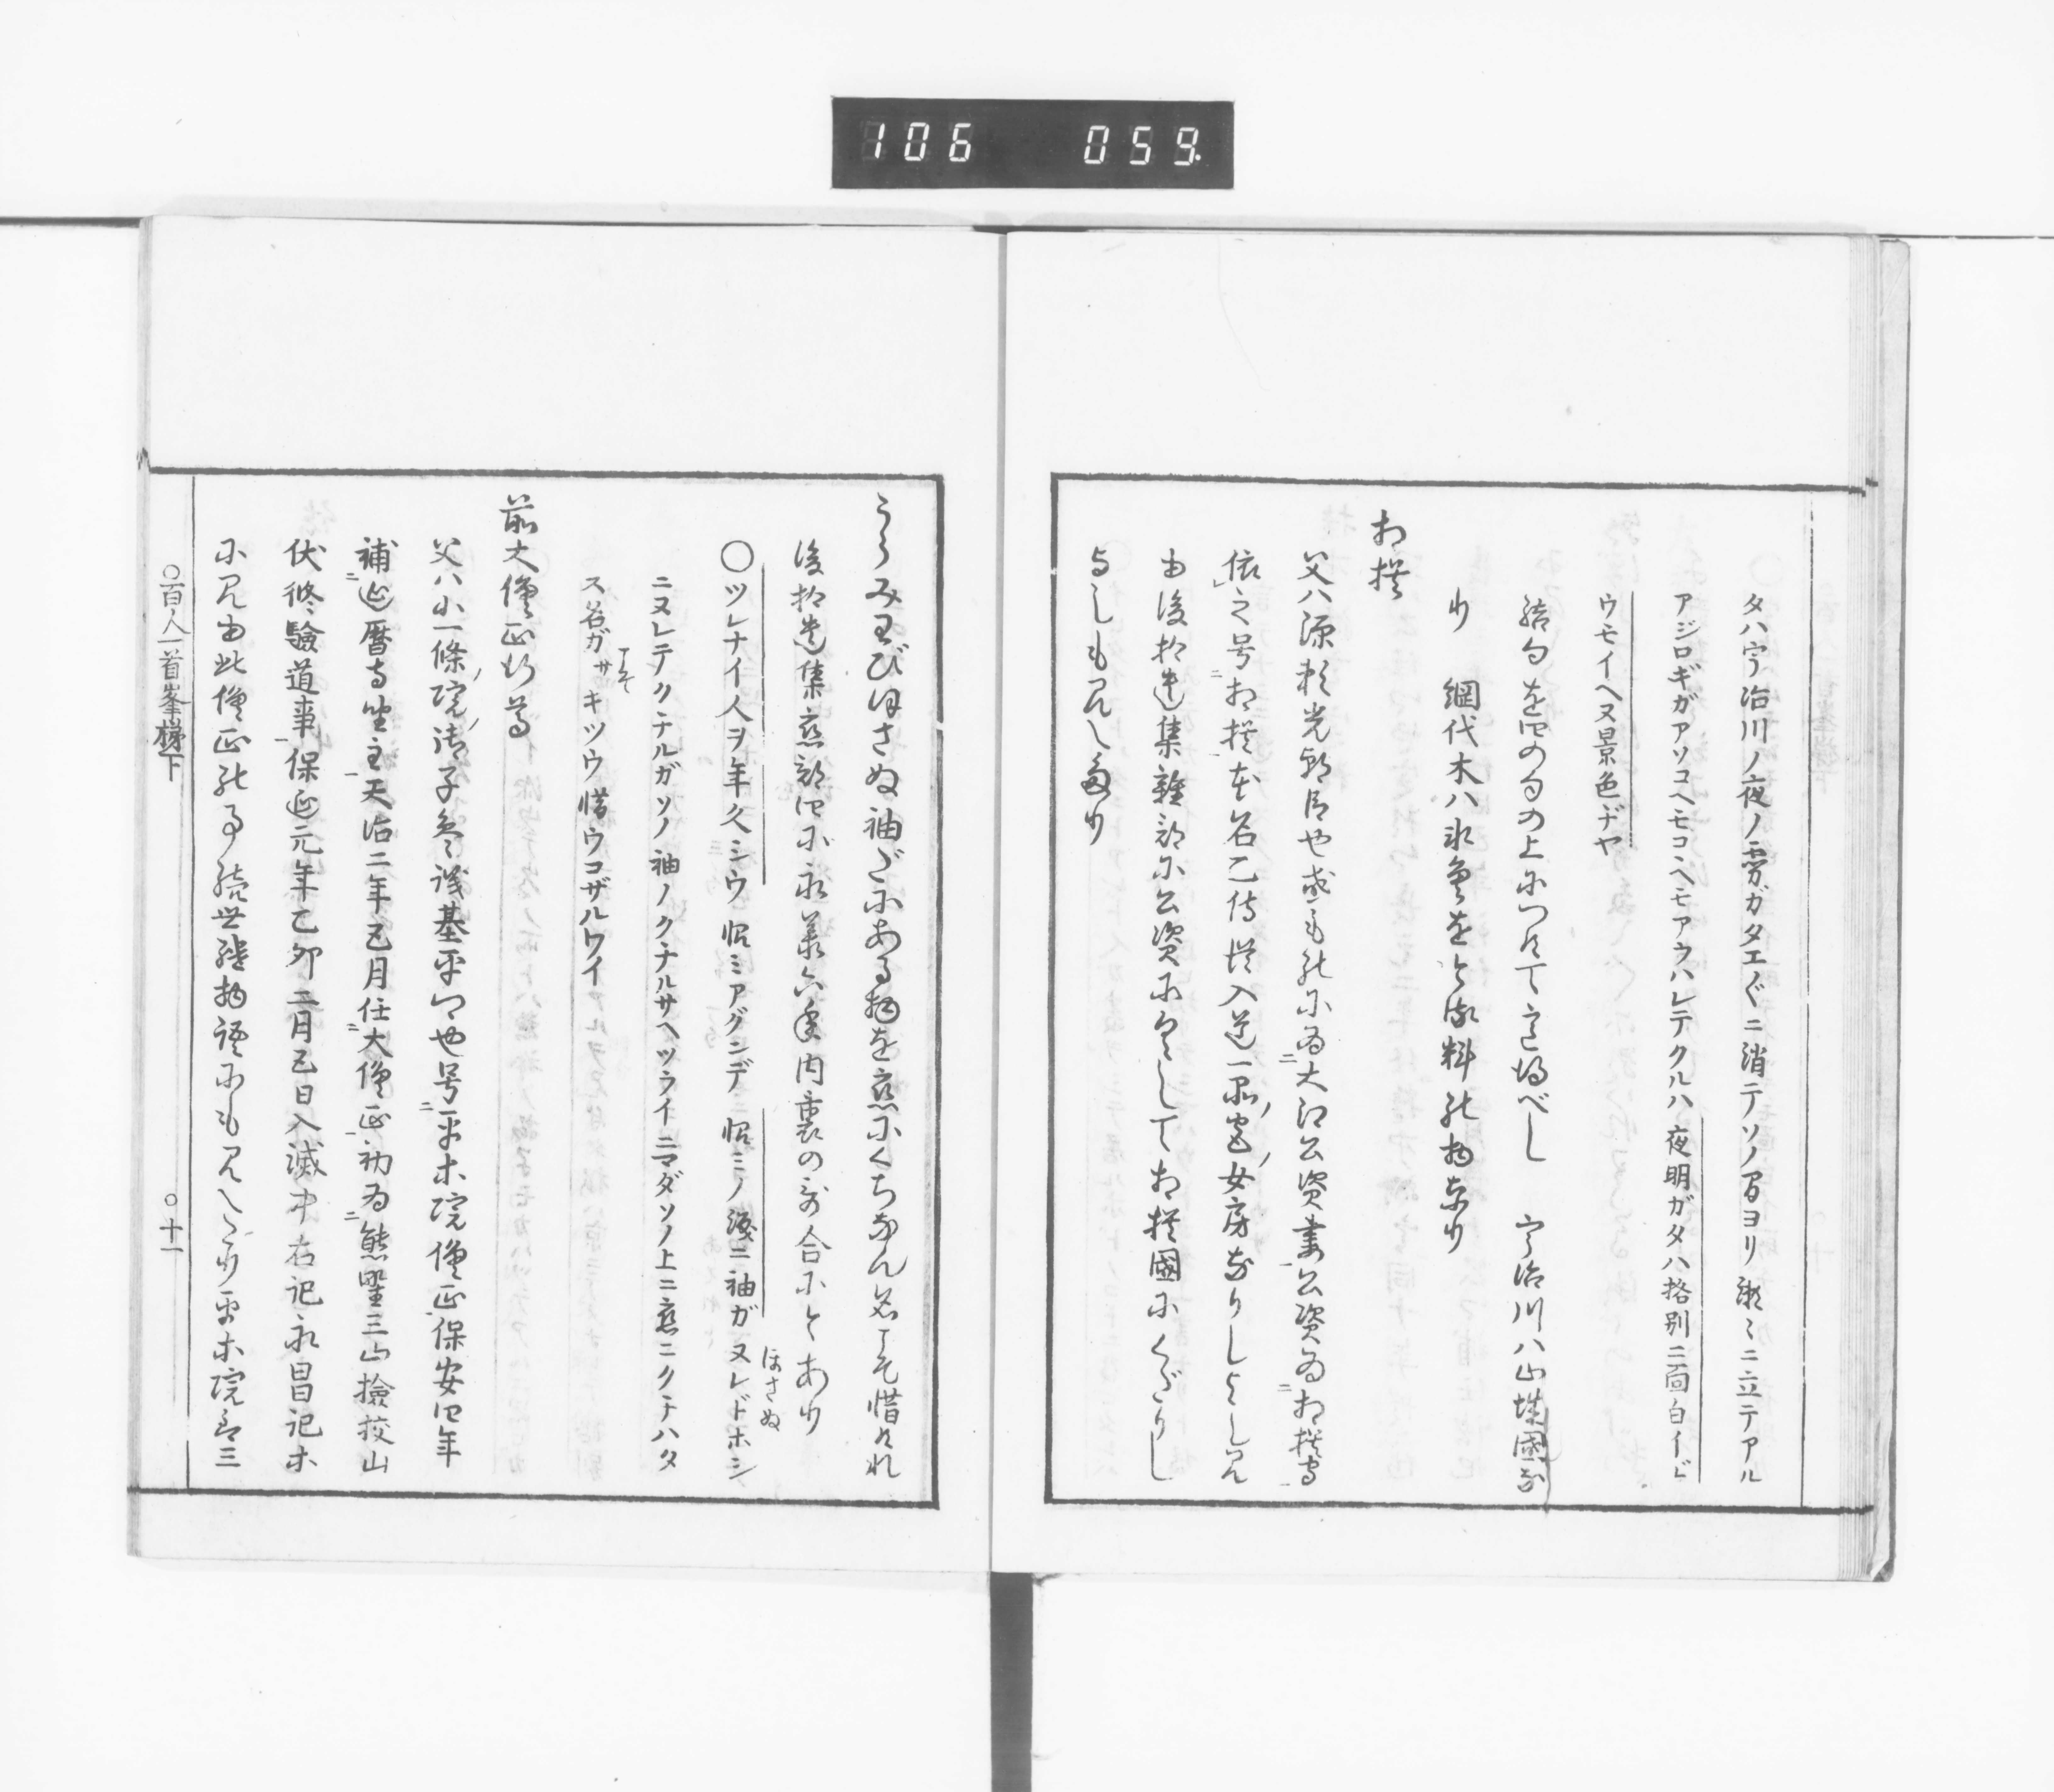 106 059
タハ宇治川ノ夜ノ霧ガタエ〴〵ニ消テソノ間ヨリ瀬〻ニ立テアル
アジロギガアソコヘモコヘモアラハレテクルハ夜明ガタハ格別ニ面白イド
ウモイヘヌ景色ヂヤ
結句を四の句の上につけて心得べし 宇治川ハ山城國な
り 網代木ハ氷魚をとる料の物なり
相模
父ハ源頼光朝臣也或も為大江公資妻公資為相模守
依之号相模本名乙侍従入道一品宮女房なりしよし見
由後拾遺集雑部に公資に具して相模國にくだりし
よしも見へたり
うらみわびほさぬ袖だにあるものを恋にくちなん名こそ惜けれ
後拾遺集恋部四に永承六年内裏の歌合にとあり
○ツレナイ人ヲ年久シウ恨ミアグンデ恨ミノ涙ニ袖ガヌレドホシ
ほさぬ
ニヌレテクチルガソノ袖ノクチルサヘツライニマダソノ上ニ恋ニクチハタ
ス名ガサ キツウ惜ウコザルワイ
こそ
前大僧正行尊
父ハ小一條院御子参議基平卿也号平等院僧正保安四年
補延暦寺座主天治二年五月任大僧正初為熊野三山検校山
伏修驗道事保延元年乙卯二月五日入滅中右記永昌記等
に見由此僧正の事続世継物語にも見へたり平等院三
○百人一首峯梯下
○十一